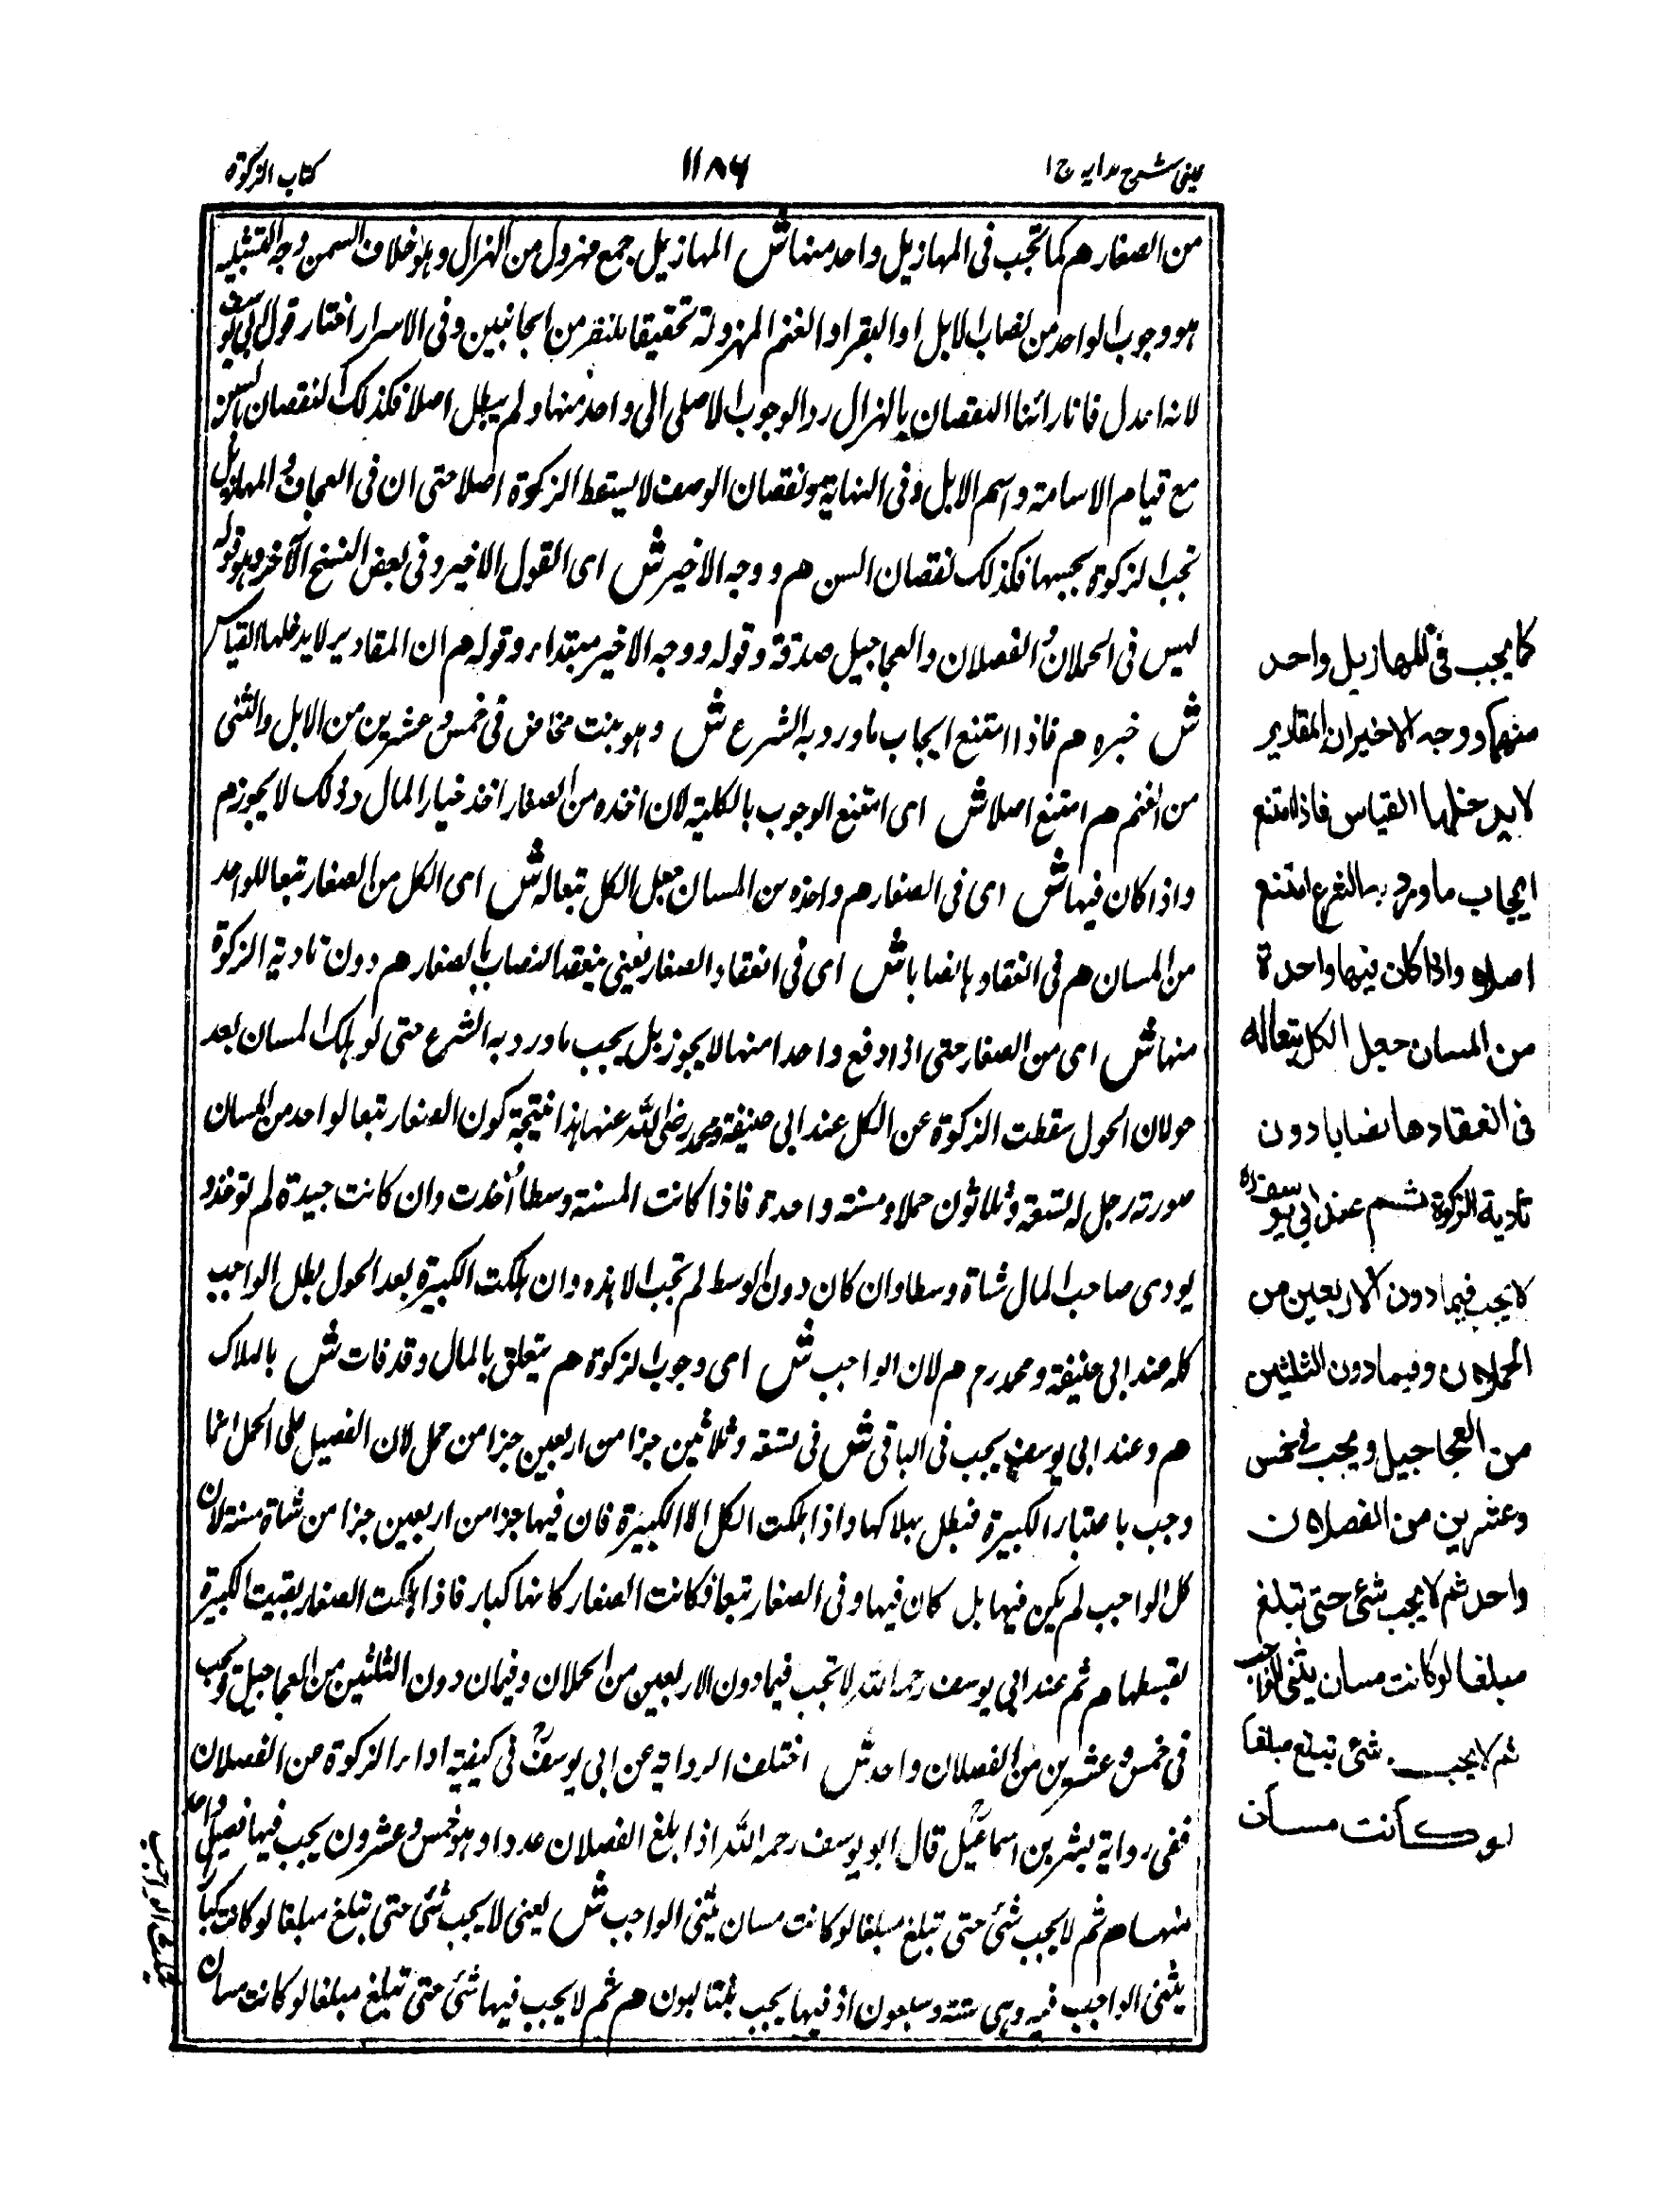 عینی شرح هدایه ج ۱
۱۱۸۶
کتاب الزکوة
من الصغار هم کما تجب فی المهازیل واحد منها ش المهازیل جمع مهزول من الهزال وهو خلاف السمن وجه التمثیل
هو وجوب الواحد من نصاب الابل او البقر او الغنم المهزولة تحقیقا للنظر من الجانبین وفی الاسرار اختار قول ابی یوسف
لانه اعدل فانا رأینا النقصان بالهزال رد الوجوب الاصلی الی واحد منها ولم یبطل اصلا فکذلک النقصان بالسن
مع قیام الاسامة واسم الابل وفی النهایة هو نقصان الوصف لا یسقط الزکوة اصلا حتی ان فی العجاف والمهازیل
تجب الزکوة بحسبها فکذلک نقصان السن هم ووجه الاخیر ش ای القول الاخیر وفی بعض النسخ الآخر وهو قوله
لیس فی الحملان والفصلان والعجاجیل صدقة وقوله ووجه الاخیر مبتداء وقوله هم ان المقادیر لا یدخلها القیاس
ش خبره هم فاذا امتنع ایجاب ما ورد به الشرع ش وهو بنت مخاض فی خمس وعشرین من الابل والثنی
من الغنم هم امتنع اصلا ش ای امتنع الوجوب بالکلیة لان اخذه من الصغار اخذ خیار المال وذلک لا یجوز هم
واذا کان فیها ش ای فی الصغار هم واحده من المسان جعل الکل تبعا له ش ای الکل من الصغار تبعا للواحد
من المسان هم فی انعقادها نصابا ش ای فی انعقاد الصغار یعنی ینعقد النصاب بالصغار هم دون تادیة الزکوة
منها ش ای من الصغار حتی اذا دفع واحدا منها لا یجوز بل یجب ما ورد به الشرع حتی لو هلک المسان بعد
حولان الحول سقطت الزکوة عن الکل عند ابی حنیفة ومحمد رضی الله عنهما هذا نتیجة کون الصغار تبعا لواحد من المسان
صورته رجل له تسعة وثلاثون حملا ومسنة واحدة فاذا کانت المسنة وسطا أخذت وان کانت جیدة لم توخذ و
یودی صاحب المال شاة وسطا وان کان دون الوسط لم تجب الا هذه وان هلکت الکبیرة بعد الحول بطل الواجب
کله عند ابی حنیفة ومحمد رح هم لان الواجب ش ای وجوب الزکوة هم یتعلق بالمال وقد فات ش بالهلاک
هم وعند ابی یوسف یجب فی الباقی ش فی تسعة وثلاثین جزا من اربعین جزا من حمل لان الفضل علی الحمل انما
وجب باعتبار الکبیرة فبطل بهلاکها واذا هلکت الکل الا الکبیرة فان فیها جزا من اربعین جزا من شاة مسنة لان
کل الواجب لم یکن فیها بل کان فیها وفی الصغار تبعا فکانت الصغار کانها کبار فاذا هلکت الصغار بقیت الکبیرة
بقسطها هم ثم عند ابی یوسف رحمه الله لا تجب فیما دون الاربعین من الحملان وفیمان دون الثلثین من العجاجیل وتجب
فی خمس وعشرین من الفصلان واحد ش اختلف الروایة عن ابی یوسف رح فی کیفیة اداء الزکوة من الفصلان
ففی روایة بشر بن اسماعیل قال ابو یوسف رحمه الله اذا بلغ الفصلان عددا وهو خمس وعشرون یجب فیها فصیل واحد
منها هم ثم لا یجب شئ حتی تبلغ مبلغا لو کانت مسان یثنی الواجب ش یعنی لا یجب شئ حتی تبلغ مبلغا لو کانت کبارا
یثنی الواجب فیه وهی ستة وسبعون اذ فیها یجب بنتا لبون هم ثم لا یجب فیها شئ حتی تبلغ مبلغا لو کانت مسان
کما یجب فی المهازیل واحد
منها ووجه الاخیر ان المقادیر
لا یدخلها القیاس فاذا امتنع
ایجاب ما ورد به الشرع امتنع
اصلا واذا کان فیها واحدة
من المسان جعل الکل تبعا له
فی انعقادها نصابا دون
تادیة الزکوة ثم عند ابی یوسف رح
لا یجب فیما دون الاربعین من
الحملان وفیما دون الثلثین
من العجاجیل ویجب فی خمس
وعشرین من الفصلان
واحد ثم لا یجب شئ حتی تبلغ
مبلغا لو کانت مسان یثنی الواجب
ثم لا یجب شئ تبلغ مبلغا
لو کانت مسان